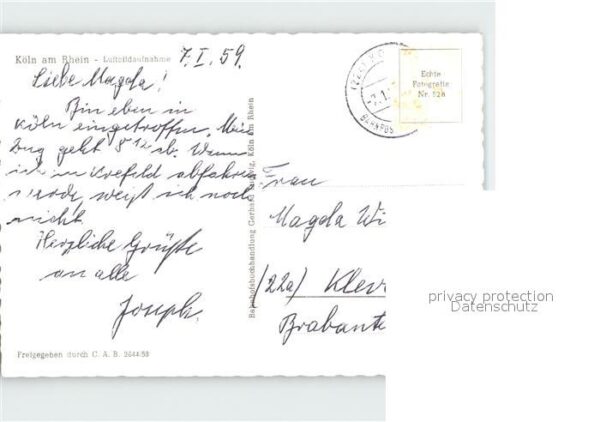 Köln am Rhein - Luftbildaufnahme
7.I.59.
Liebe Magda!
Bin eben in
Köln eingetroffen. Mein
Zug geht 8 12 ab. Wann
ich in Krefeld abfahren
werde, weiß ich noch
nicht.
Herzliche Grüße
an alle
Joseph.
Freigegeben durch C. A. B. 2644/58
Bahnhofsbuchhandlung Gerhard Ludwig, Köln am Rhein
BAHNPOS
Echte
Fotografie
Nr. 528
Frau
Magda Wi
(22a) Klev
Brabante
privacy protection
Datenschutz